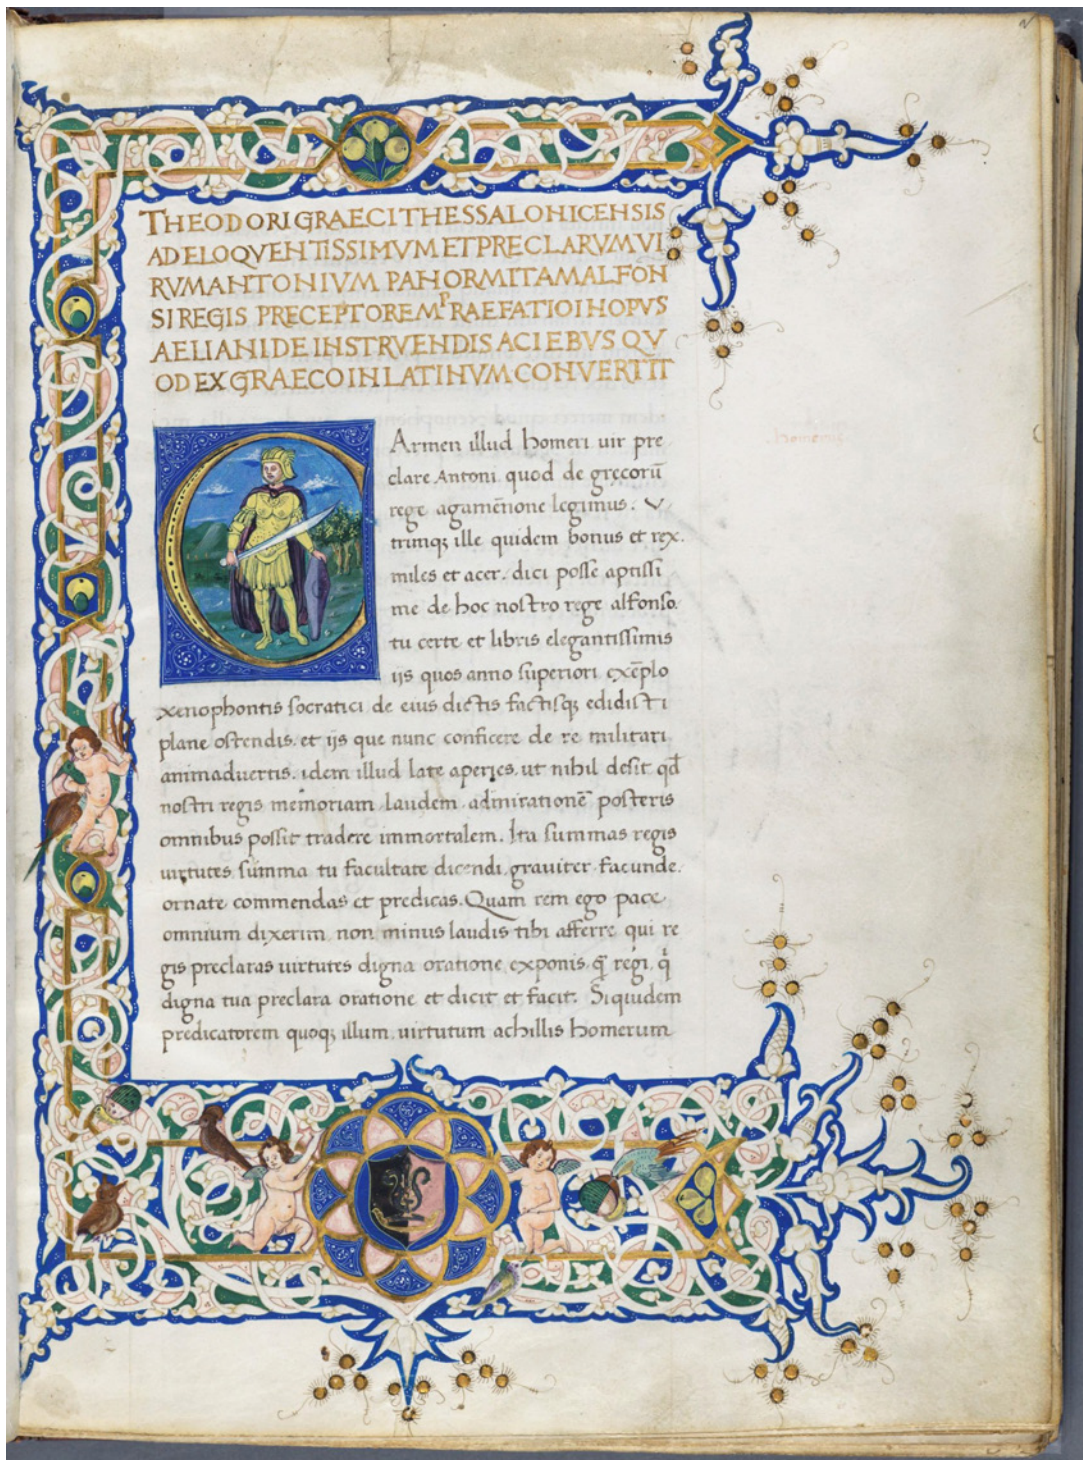 THEODORI GRAECI THESSALONICENSIS
AD ELOQVENTISSIMVM ET PRECLARVM VI
RVM ANTONIVM PANORMITAM ALFON
SI REGIS PRECEPTOREM PRAEFATIO IN OPVS
AELIANI DE INSTRVENDIS ACIEBVS QV
OD EX GRAECO IN LATINVM CONVERTIT
CArmen illud homeri uir pre
clare Antoni quod de grecorū
rege agamēnone legimus. V
trinqꝫ ille quidem bonus et rex.
miles et acer. dici posse aptissi
me de hoc nostro rege alfonso.
tu certe et libris elegantissimis
ijs quos anno superiori exēplo
xenophontis socratici de eius dictis factisqꝫ edidisti
plane ostendis. et ijs que nunc conficere de re militari
animaduertis. idem illud late aperies. ut nihil desit qđ
nostri regis memoriam laudem admirationē posteris
omnibus possit tradere immortalem. Ita summas regis
uirtutes summa tu facultate dicendi. grauiter facunde.
ornate commendas et predicas. Quam rem ego pace
omnium dixerim non minus laudis tibi afferre qui re
gis preclaras uirtutes digna oratione exponis. q̃ regi. q̇
digna tua preclara oratione et dicit et facit. Siquidem
predicatorem quoqꝫ illum uirtutum achillis homerum